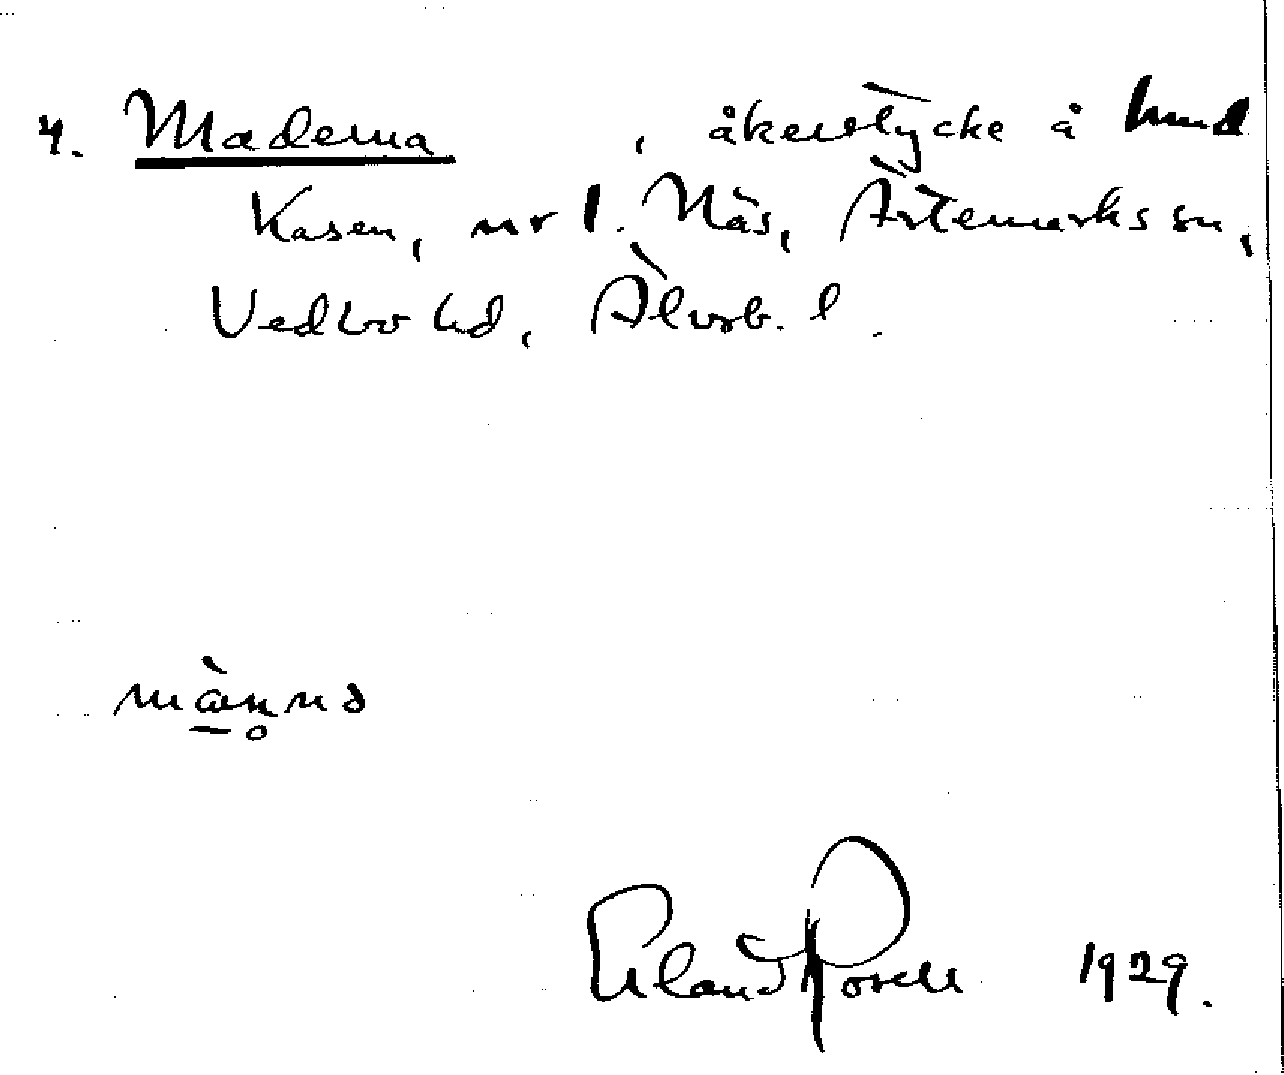 4. Maderna, åkerstycke å hmd
Kasen, nr 1. Näs, Ärtemarks sn,
Vedbo hd, Älvsb. l.
Erland Rosell 1929.